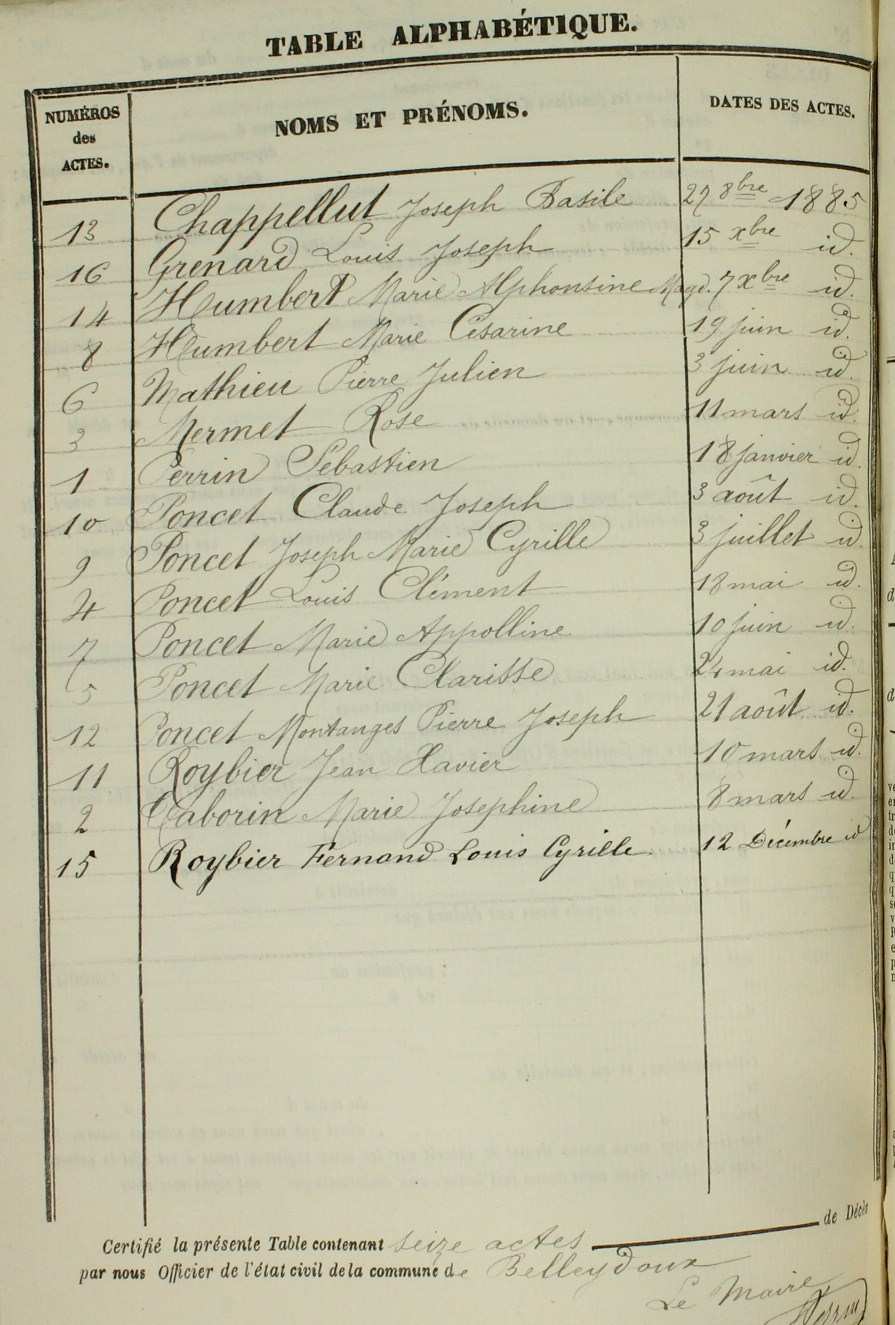 TABLE ALPHABÉTIQUE.
NUMÉROS des ACTES. NOMS ET PRÉNOMS. DATES DES ACTES.
13 Chappellut Joseph Basile 27 8bre 1885
16 Grenard Louis Joseph 15 xbre id.
14 Humbert Marie Alphonsine Magd. 7 xbre id.
8 Humbert Marie Césarine 19 juin id.
6 Mathieu Pierre Julien 3 juin id.
3 Mermet Rose 11 mars id.
1 Perrin Sébastien 18 janvier id.
10 Poncet Claude Joseph 3 août id.
9 Poncet Joseph Marie Cyrille 3 juillet id.
4 Poncet Louis Clément 18 mai id.
7 Poncet Marie Appolline 10 juin id.
5 Poncet Marie Clarisse 24 mai id.
12 Poncet Montanges Pierre Joseph 21 août id.
11 Roybier Jean Xavier 10 mars id.
2 Taborin Marie Josephine 8 mars id.
15 Roybier Fernand Louis Cyrille. 12 Décembre id
Certifié la présente Table contenant seize actes de Décès
par nous Officier de l'état civil de la commune de Belleydoux
Le Maire,